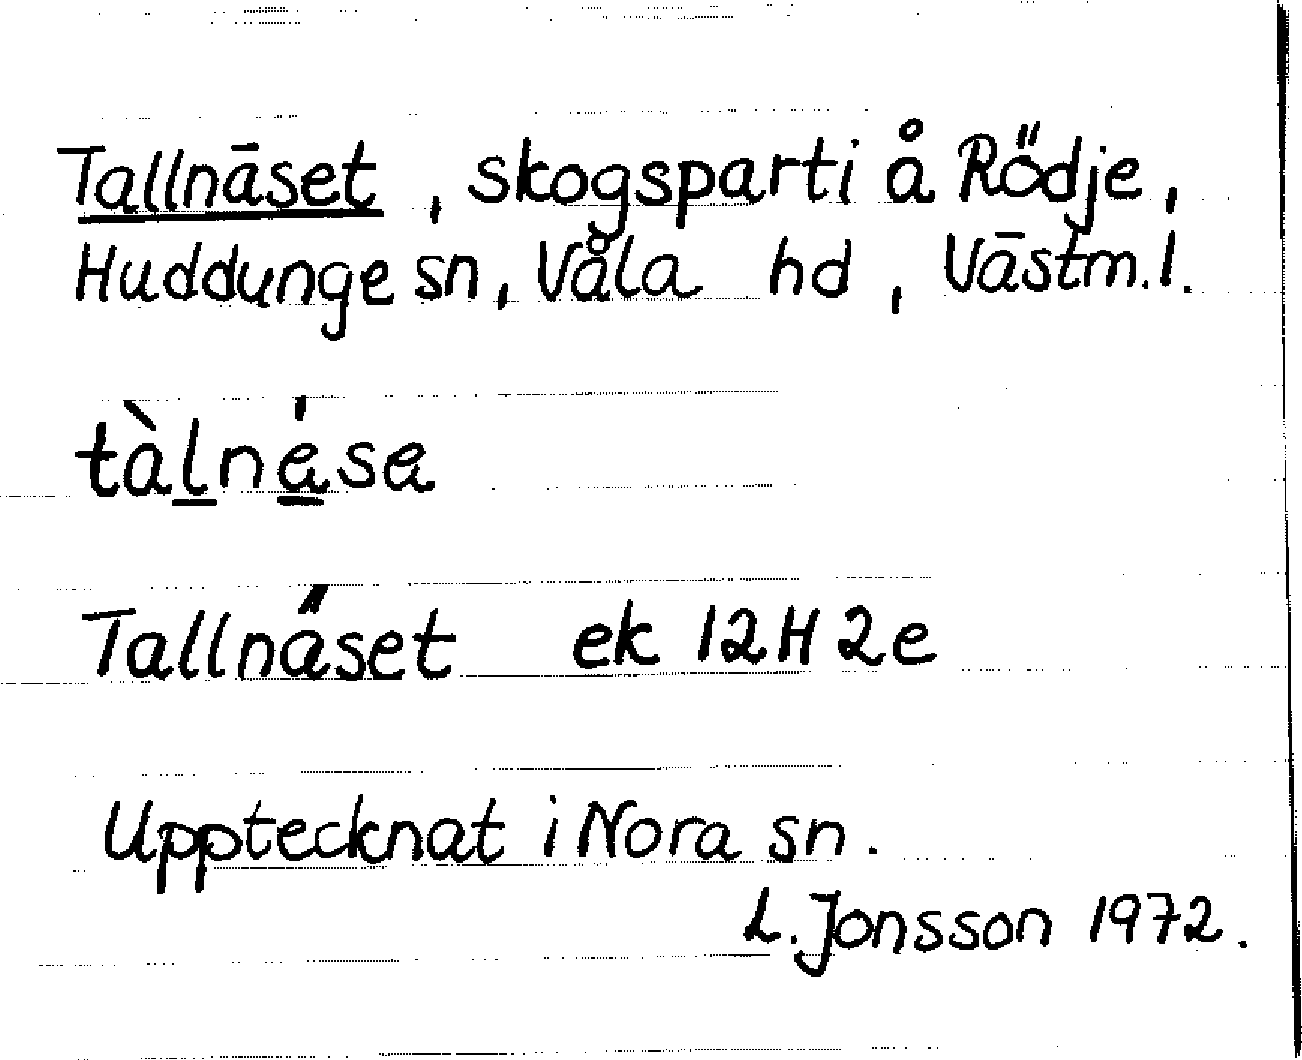 Tallnäset, skogsparti å Rödje,
Huddunge sn, Våla hd, Västm.l.
Tallnäset ek 12H2e
Upptecknat i Nora sn.
L. Jonsson 1972.